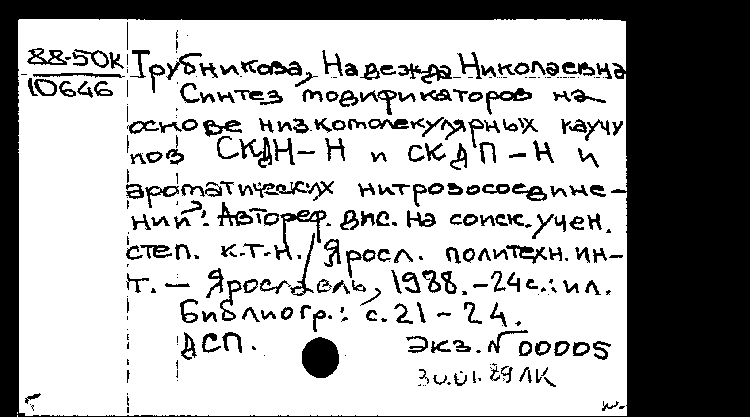 88-50К
10646
Трубникова, Надежда Николаевна
Синтез модификаторов на
основе низкомолекулярных каучу
ков СКДН-Н и СКДП-Н и
ароматических нитрозосоедине-
ний: Автореф. дис. на соиск. учен.
степ. к.т.н. / Яросл. политехн. ин-
т. — Ярославль, 1988. - 24с.: ил.
Библиогр.: с. 21-24.
ДСП. Экз. № 00005
30.01.89 ЛК